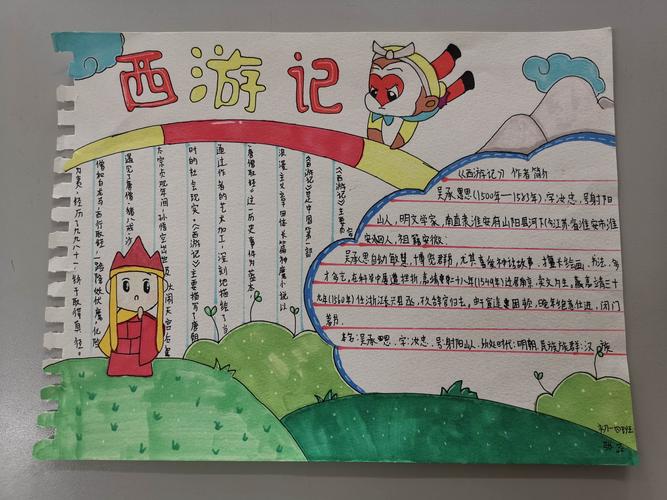 西游记
《西游记》主要
《西游记》是中国第一部
浪漫主义章回体长篇神魔小说以
唐僧取经这一历史事件为蓝本,
通过作者的艺术加工,深刻地描绘了当
时的社会现实。《西游记》主要描写了唐朝
太宗贞观年间,孙悟空出世及大闹天宫后
遇见了唐僧、猪八戒、沙
僧和白龙马,西行取经,一路降妖伏魔,化险
为夷,经历了九九八十一,终于取得真经。
《西游记》作者简介
吴承恩(1500年一1583年)字汝忠,号射阳
山人,明文学家,南直隶淮安府山阳县河下(今江苏省淮安市淮
安区)人,祖籍安徽:
吴承恩自幼聪慧,博览群书,尤其喜爱神话故事,擅长绘画、书法、多
才多艺,在科举中屡遭挫折,嘉靖
九年(1560年)任浙江长兴县丞,不久辞官归去,
晚年绝意仕进,闭门
著书
本名:吴承恩,字:汝忠,号:射阳山人,所处时代:明朝,民族族群:汉族
初一